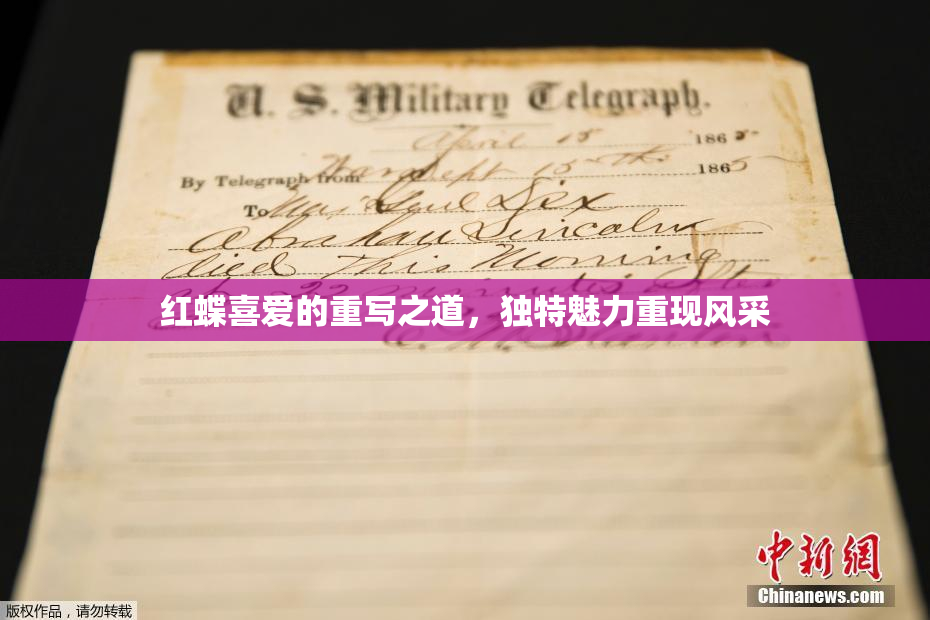 U. S. Military Telegraph.
April 15 1865
By Telegraph from War Dept 15th 1865
To Maj Genl Dix
Abraham Lincoln
died This Morning
at 22 minutes after
红蝶喜爱的重写之道，独特魅力重现风采
E. M. Stanton
中新网
Chinanews.com
版权作品，请勿转载